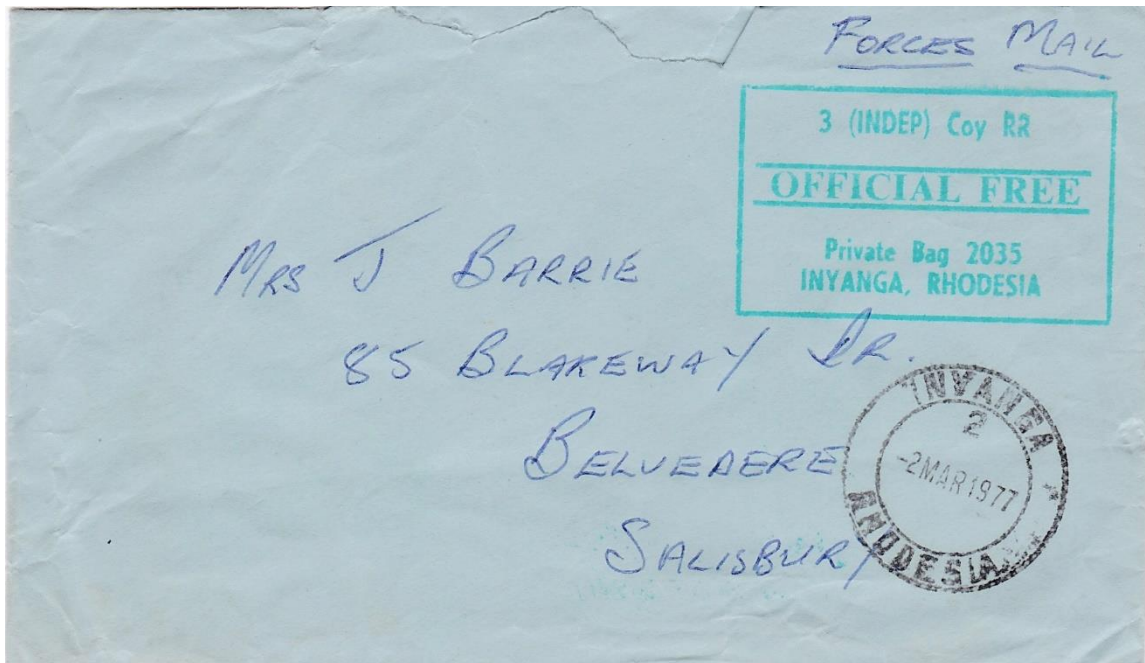 FORCES MAIL
3 (INDEP) Coy RR
OFFICIAL FREE
Private Bag 2035
INYANGA, RHODESIA
MRS J BARRIE
85 BLAKEWAY DR.
BELVEDERE
SALISBURY
INYANGA
2
-2MAR1977
RHODESIA